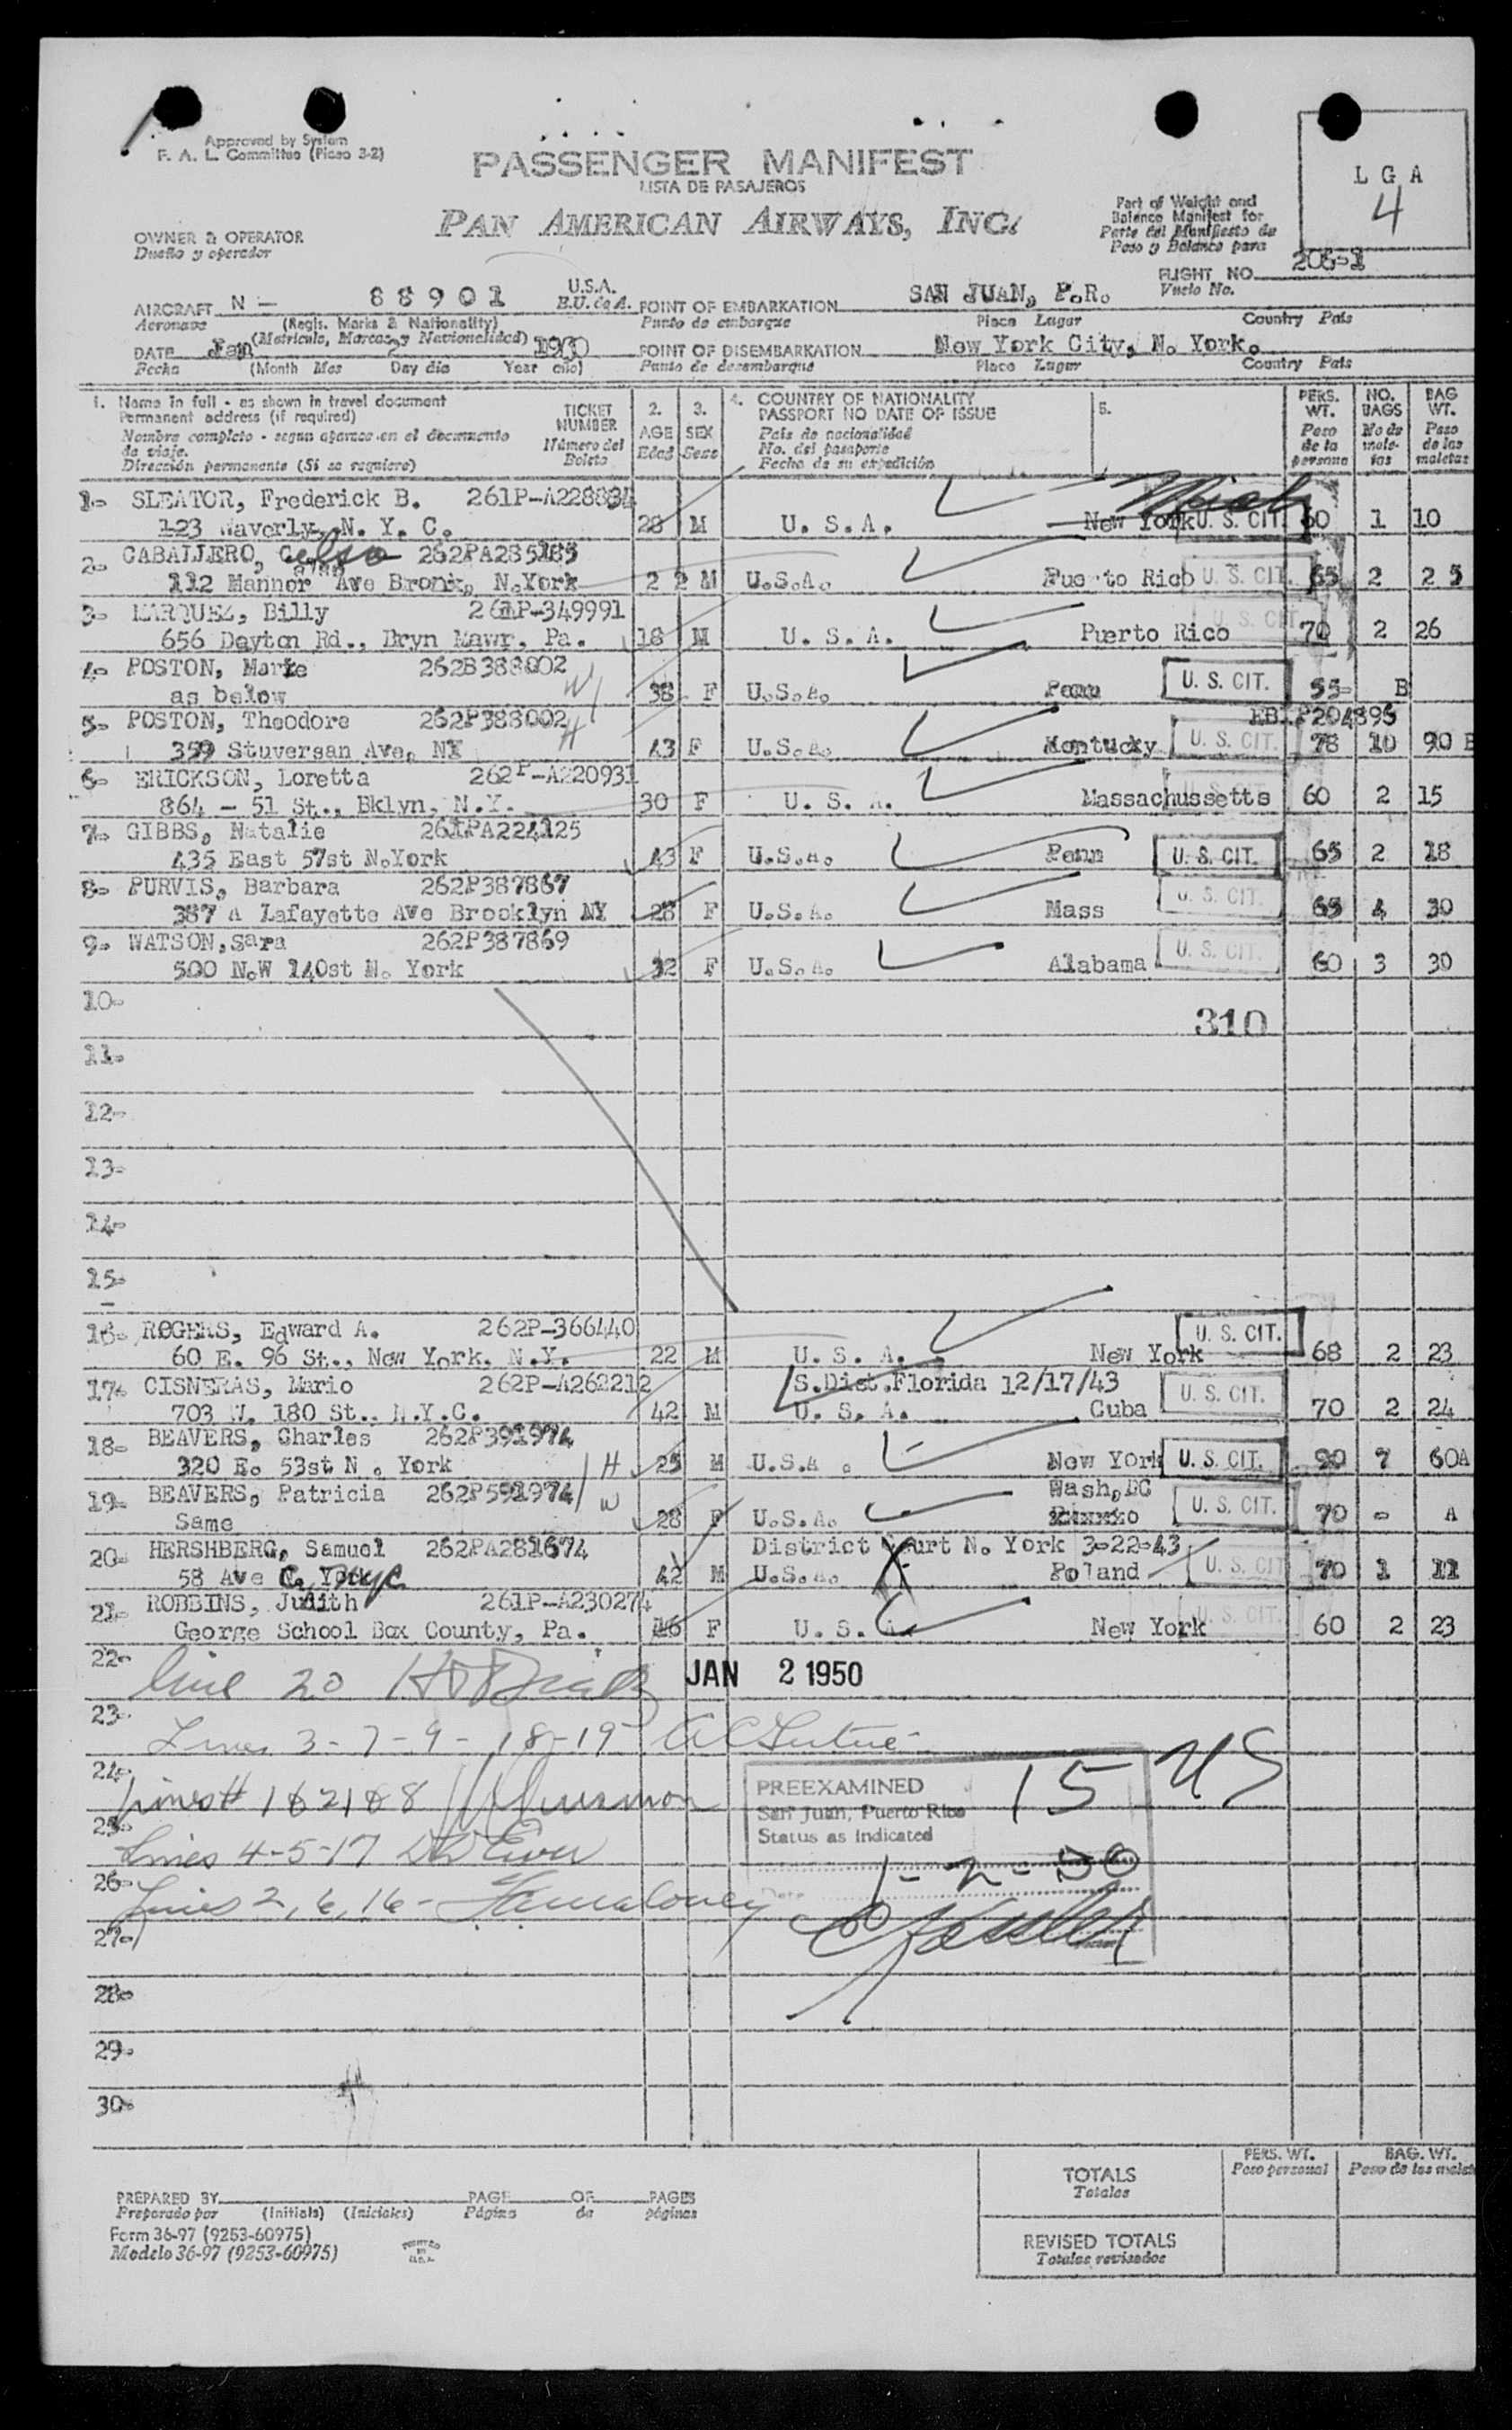 Approved by System
F. A. L. Committee (Picao 3-2)
PASSENGER MANIFEST
LISTA DE PASAJEROS
PAN AMERICAN AIRWAYS, INC.
L G A
4
Part of Weight and
Balance Manifest for
Parte del Manifiesto de
Peso y Balance para
OWNER & OPERATOR
Dueño y operador
FLIGHT NO. 206-1
Vuelo No.
AIRCRAFT N - 88901 U.S.A.
Aeronave (Regis. Marks & Nationality) E.U. de A.
(Matricula, Marcas y Nacionalidad)
POINT OF EMBARKATION SAN JUAN, P.R.
Punto de embarque Place Lugar Country Pais
DATE Jan 2 1950
Fecha (Month Mes Day dia Year año)
POINT OF DISEMBARKATION New York City, N. York.
Punto de desembarque Place Lugar Country Pais
1. Name in full - as shown in travel document
Permanent address (if required)
Nombre completo - segun aparece en el documento
de viaje.
Dirección permanente (Si se requiere)
TICKET
NUMBER
Número del
Boleto
2.
AGE
Edad
3.
SEX
Sexo
4. COUNTRY OF NATIONALITY
PASSPORT NO DATE OF ISSUE
Pais de nacionalidad
No. del pasaporte
Fecha de su expedición
5.
PERS.
WT.
Peso
de la
persona
NO.
BAGS
No de
male-
tas
BAG
WT.
Peso
de las
maletas
1- SLEATOR, Frederick B. 261P-A228834 Mich
123 Waverly, N. Y. C. 28 M U. S. A. New York U. S. CIT. 60 1 10
2- CABALLERO, Celso 262PA285185
112 Mannor Ave Bronx, N.York 22 M U.S.A. Puerto Rico U. S. CIT. 65 2 25
3- MARQUEZ, Billy 261P-349991
656 Dayton Rd., Bryn Mawr, Pa. 18 M U. S. A. Puerto Rico U. S. CIT. 70 2 26
4- POSTON, Marie 262B388002 W
as below 38 F U.S.A. Penn U. S. CIT. 55- B
5- POSTON, Theodore 262P388002 H EB. P204895
359 Stuversan Ave, NY 43 F U.S.A. Kentucky U. S. CIT. 78 10 90 B
6- ERICKSON, Loretta 262P-A220931
864 - 51 St., Bklyn, N.Y. 30 F U. S. A. Massachussetts U. S. CIT. 60 2 15
7- GIBBS, Natalie 261PA224125
435 East 57st N.York 43 F U.S.A. Penn U. S. CIT. 65 2 18
8- PURVIS, Barbara 262P387867
387 A Lafayette Ave Brooklyn NY 28 F U.S.A. Mass U. S. CIT. 65 4 30
9- WATSON, Sara 262P387869
500 N.W 140st N. York 32 F U.S.A. Alabama U. S. CIT. 60 3 30
10-
310
11-
12-
13-
14-
15-
16- ROGERS, Edward A. 262P-366440
60 E. 96 St., New York, N.Y. 22 M U. S. A. New York U. S. CIT. 68 2 23
17- CISNERAS, Mario 262P-A262212 S.Dist.Florida 12/17/43
703 W. 180 St., N.Y.C. 42 M U. S. A. Cuba U. S. CIT. 70 2 24
18- BEAVERS, Charles 262P391974
320 E. 53st N. York H 25 M U.S.A. New York U. S. CIT. 90 7 60A
19- BEAVERS, Patricia 262P591974 W Wash,DC
Same 28 F U.S.A. U. S. CIT. 70 - A
20- HERSHBERG, Samuel 262PA281674 District Court N. York 3-22-43
58 Ave C, NYC 42 M U.S.A. Poland U. S. CIT. 70 1 11
21- ROBBINS, Judith 261P-A230274
George School Box County, Pa. 16 F U. S. A. New York U. S. CIT. 60 2 23
22- line 20 JAN 2 1950
23- Lines 3-7-9-18-19
24-
PREEXAMINED 15 US
San Juan, Puerto Rico
Status as Indicated
1-2-50
Date
25-
Lines 4-5-17
26-
Lines 2, 6, 16-
27-
28-
29-
30-
TOTALS
Totales
PERS. WT.
Peso personal
BAG. WT.
REVISED TOTALS
Totales revisados
PREPARED BY PAGE OF PAGES
Preparado por (Initials) (Iniciales) Página de páginas
Form 36-97 (9253-60975)
Modelo 36-97 (9253-60975)
PRINTED
IN
U.S.A.